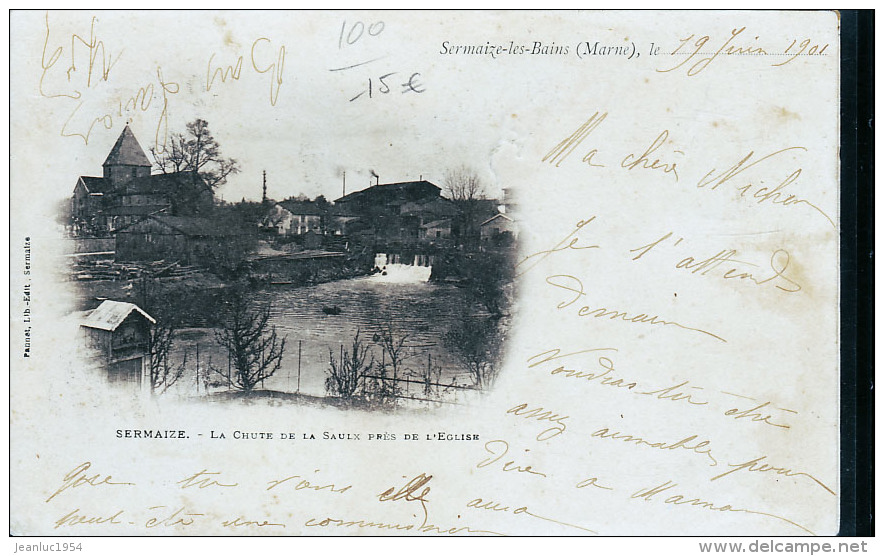 100
15 €
Sermaize-les-Bains (Marne), le 19 Juin 1901
Ma chère Nichon
Je t'attends
demain
Voudras tu être
assez aimable pour
dire a Maman
que tu viens elle aura
peut-être une commission
Pannet, Lib.-Edit., Sermaize
SERMAIZE. - LA CHUTE DE LA SAULX PRÈS DE L'EGLISE
Website: jeanluc1954 http://www.delcampe.net